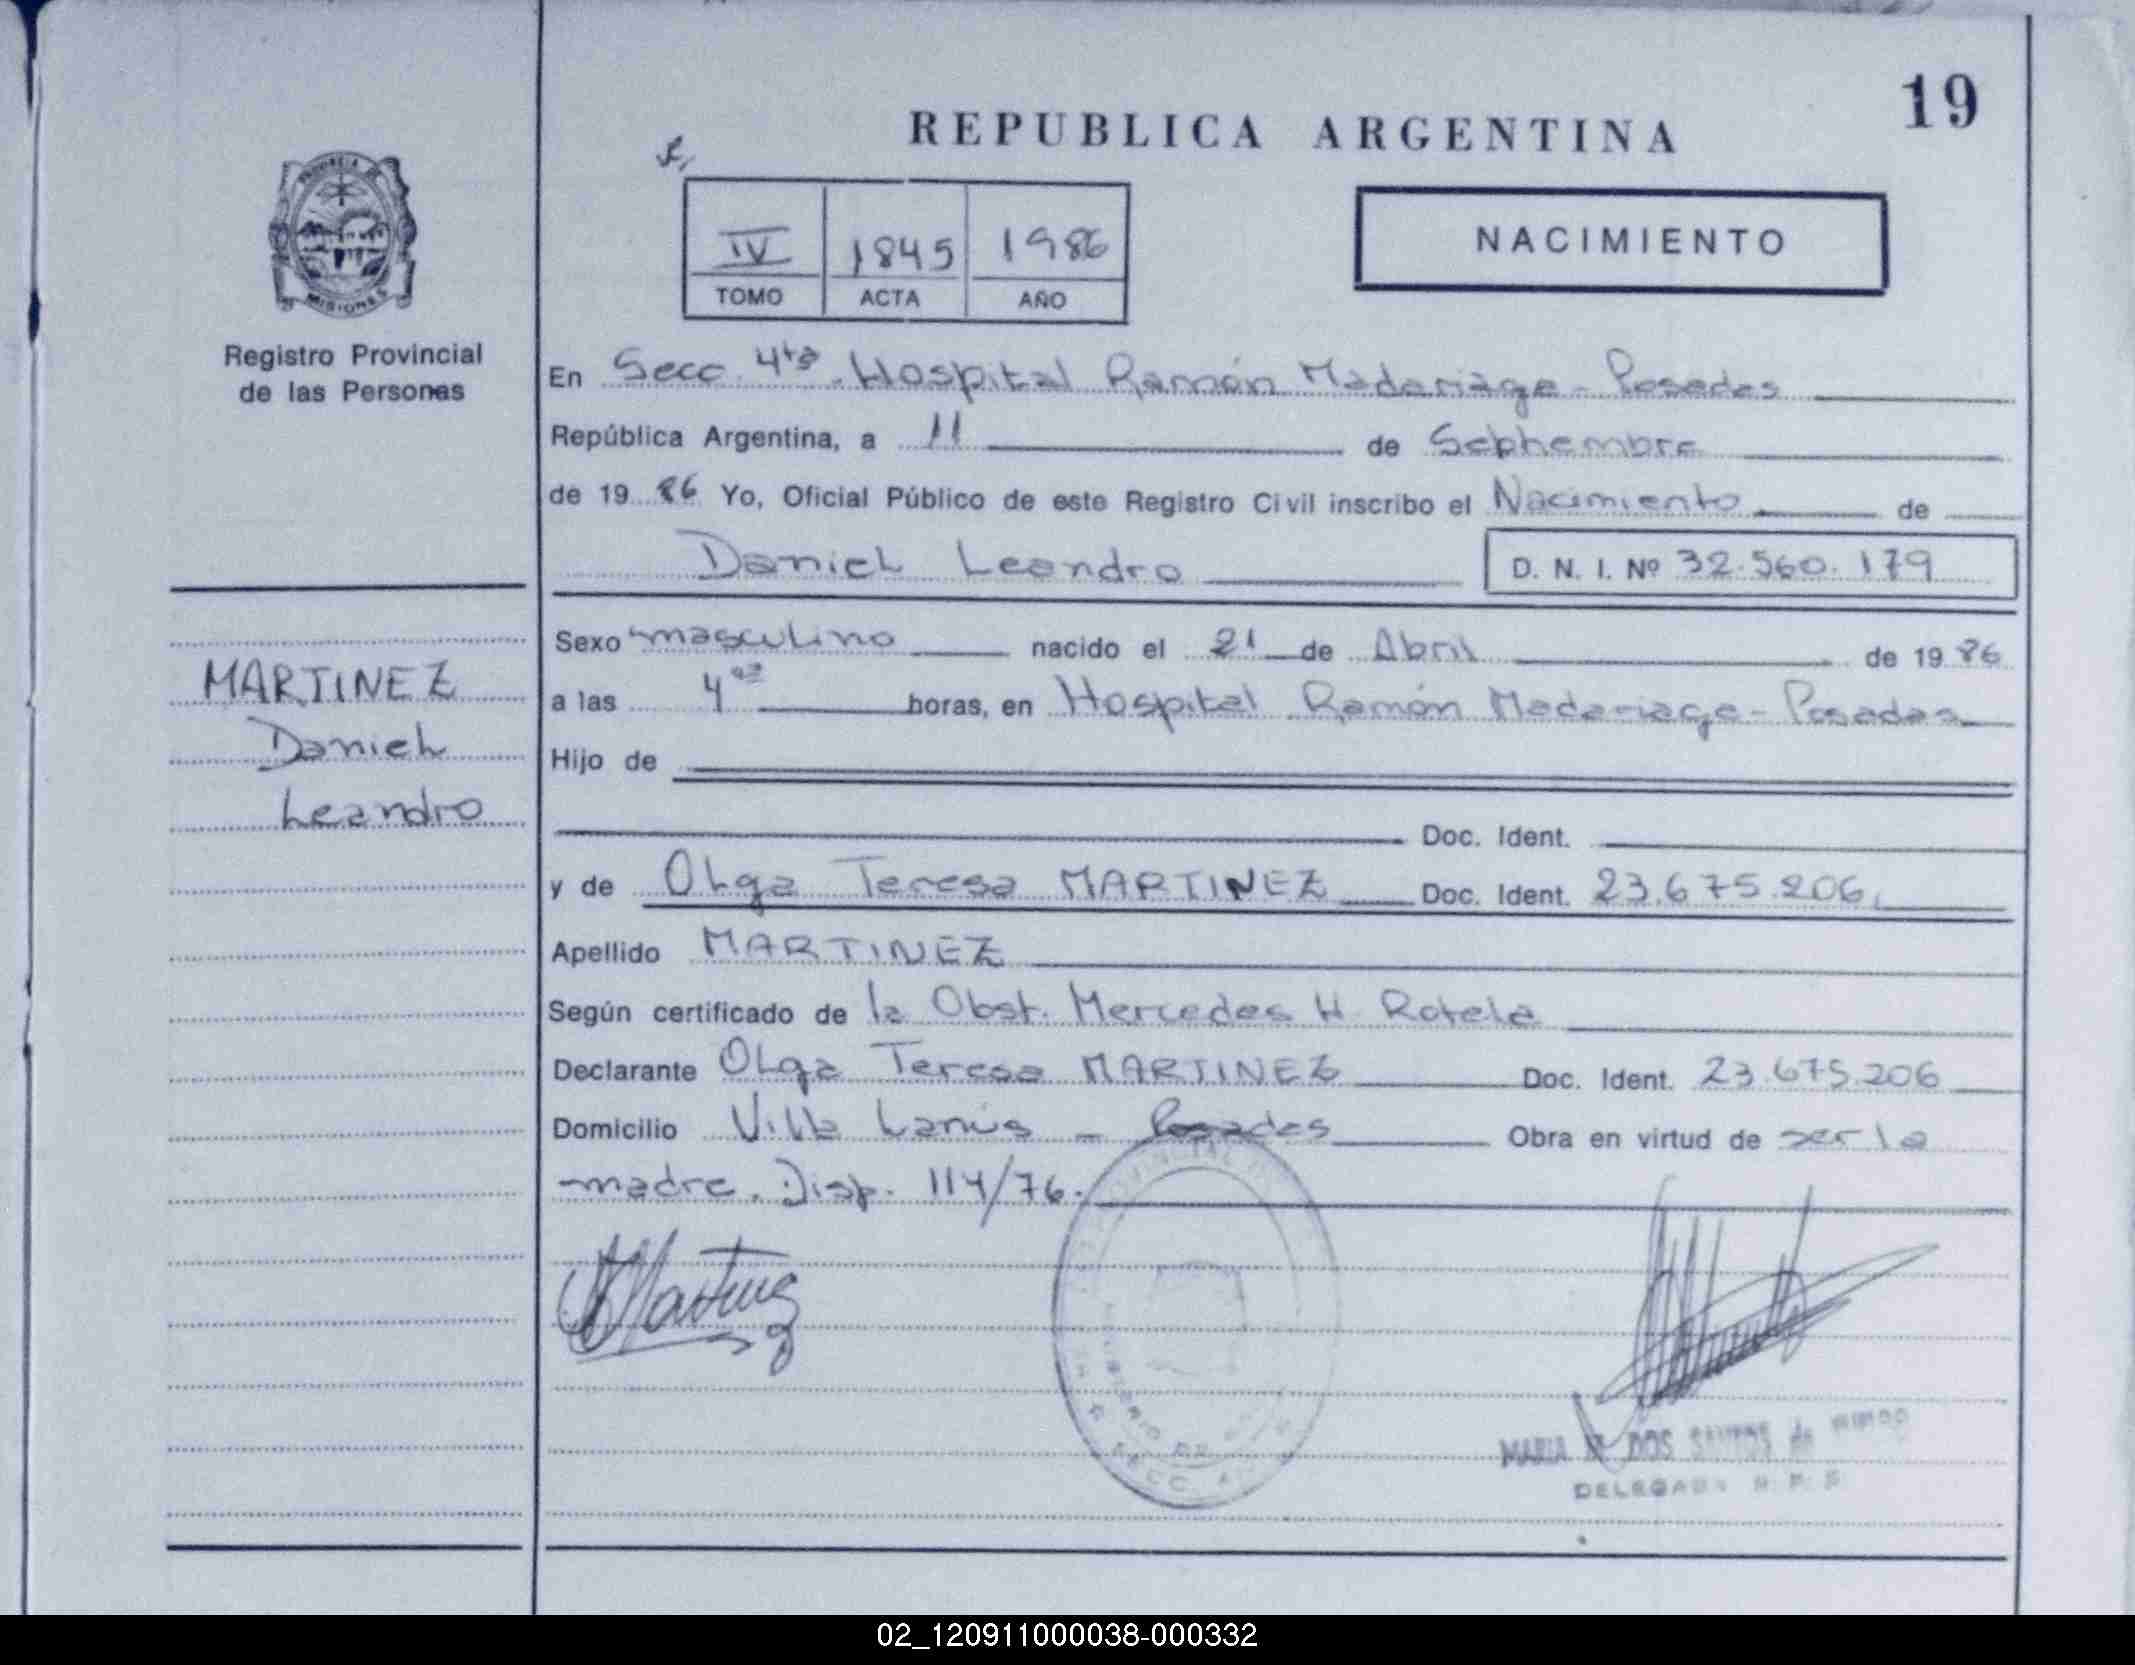 19
REPUBLICA ARGENTINA
NACIMIENTO
IV 1845 1986
TOMO ACTA AÑO
PROVINCIA DE
MISIONES
Registro Provincial
de las Personas
MARTINEZ
Daniel
Leandro
En Secc. 4ta. Hospital Ramón Madariaga - Posadas
República Argentina, a 11 de Septiembre
de 19 86 Yo, Oficial Público de este Registro Civil inscribo el Nacimiento de
Daniel Leandro D. N. I. Nº 32.560.179
Sexo masculino nacido el 21 de Abril de 19 86
a las 4 horas, en Hospital Ramón Madariaga - Posadas
Hijo de
Doc. Ident.
y de Olga Teresa MARTINEZ Doc. Ident. 23.675.206
Apellido MARTINEZ
Según certificado de la Obst. Mercedes H. Rotela
Declarante Olga Teresa MARTINEZ Doc. Ident. 23.675.206
Domicilio Villa Lanús - Posadas Obra en virtud de ser la
madre. Disp. 114/76.
Martinez
MARIA DOS SANTOS de
DELEGADA R. P. P.
02_120911000038-000332